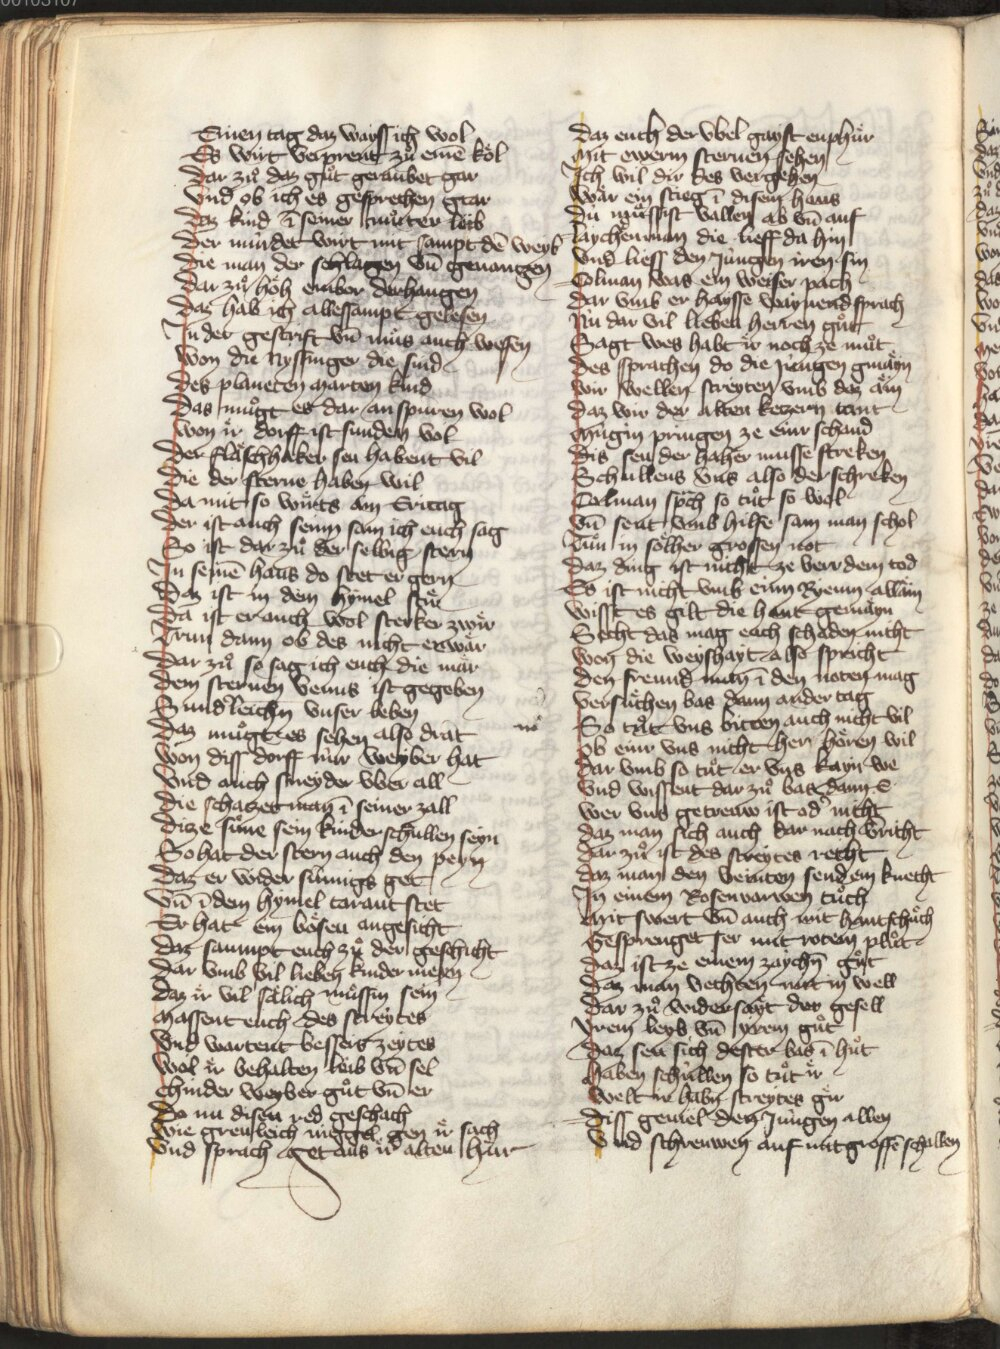 Einen tag daz wayss ich wol
Es wirt verprent zů einē kol
Dar zů daz gůt geraubet gar
Vnd ob ich es gesprechen gtar
Daz kind ī seiner můter leib
Der mindet wirt mit sampt dē weyb
Die man der schlagen vn̄ gevangen
Dar zů hoͤh enbor derhangen
Daz hab ich allessampt gelesen
In der gescrift vn̄ můs auch wesen
Won du Nyssinger die sind
Des planeten Marten kind
Das mugt es dar an spuren wol
Won ir dorff ist sunden vol
Der flaͤschhaker seu habent vil
Die der sterne haben wil
Da mit so wuͤrts am Erictag
Der ist auch seinn sam ich euch sag
So ist dar zů der selbig stern
In seinē haus do stet er gern
Daz ist in dem hymel fuͤr
Da ist er auch wol sterker zwaͤr
Trun dann ob des nicht enwaͤr
Dar zů so sag ich euch die maͤr
Dem sternen Venus ist gegeben
Sunderleichn̄ vnser leben
Daz mugt es sehen also drat
Won diss dorff nur weyber hat
Vnd auch sneyder vber all
Die schatzet man ī seiner zall
Dize süne sein kinder schullen seyn
So hat der stern auch den peyn
Daz er wider sinnigs get
Vn̄ ī dem hymel taraut stet
Er hat ein boͤsen angesicht
Daz saumpt euch zů der geschicht
Dar vmb vil lieben kinder meyn
Daz ir vil saͤlich muͤssin sein
Massent euch des streytes
Vnd wartent bessers zeytes
Wol ir behalten leib vn̄ sel
Chinder weyber gůt vn̄ er
Do nu disen red geschach
Wie greuleich meggel gen ir sach
Vnd sprach get aus ir alten huͤr
Daz euch der vbel gayst enphuͤr
Mit ewerm sternen sehen
Ich wil dir des vergehen
Waͤr ein stieg ī disem haus
Du muͤssist vallen ab vn̄ auf
Laychenman die lieff da hin
Vnd liess den jungen iren sin
Colman was ein weiser pach
Dar vmb er haysse waynend sprach
Nu dar vil lieben herren gůt
Sagt wes habt ir noch ze můt
Des sprachen do die jungen gmayn
Wir wellen streyten vmb daz ain
Daz wir der alten ketzern tant
Mugin pringen ze einr schand
Dis seu der haher musse streken
Schullens vns also derschreken
Colman spch so tůt so wol
Vn̄ sent vmb hilfe sam man schol
Tůn in soͤlher grossen not
Daz ding ist nicht ze verr dem tod
Es ist nicht vmb einn Ryemn allain
Wisst es gilt die haut gemayn
Secht das mag euch schaden nicht
Wen die weyshayt also spricht
Den freund man ī den noten mag
Versuͤchen bas dann ander tag
So tůt vns bitten auch nicht vil
nō
Ob einr vns nicht her hoͤren wil
Dar vmb so tůt er vns kayn we
Vnd wissent dar zů bas dann e
Wer vns getreuw ist od' nicht
Daz man sich auch dar nach v̄richt
Dar zů ist des streytes recht
Daz man den veinten send em knecht
In einem Rosenvarwen tůch
Mit swert vn̄ auch mit hantschůch
Gesprenget ser mit rotem plůt
Daz ist ze einem zaychn̄ gůt
Daz man vechten mit in well
Dar zů widersayt der gesell
Irem leyb vn̄ yrem gůt
Daz seu sich dester bas ī hůt
Haben schullen so tůt ir
Welt ir habn̄ streytes gir
Diss geviel den jungen allen
Vnd schreuwen auf mit grossē schallen